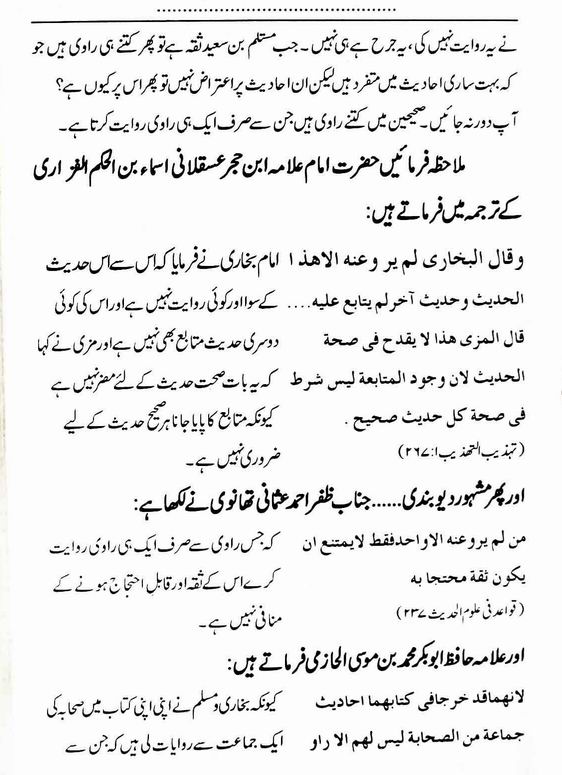 نے یہ روایت نہیں کی، یہ جرح ہے ہی نہیں۔ جب مستلم بن سعید ثقہ ہے تو پھر کتنے ہی راوی ہیں جو
کہ بہت ساری احادیث میں متفرد ہیں لیکن ان احادیث پر اعتراض نہیں تو پھر اس پر کیوں ہے؟
آپ دور نہ جائیں۔ صحیحین میں کتنے راوی ہیں جن سے صرف ایک ہی راوی روایت کرتا ہے۔
ملاحظہ فرمائیں حضرت امام علامہ ابن حجر عسقلانی اسماء بن الحکم الفزاری
کے ترجمہ میں فرماتے ہیں:
وقال البخاری لم یر و عنه الا هذ ا
الحدیث و حدیث آخر لم یتابع علیه....
قال المزی هذا لا یقدح فی صحة
الحدیث لان وجود المتابعة لیس شرط
فی صحة کل حدیث صحیح .
(تہذیب التہذیب ۱:۲۶۷)
امام بخاری نے فرمایا کہ اس سے اس حدیث
کے سوا اور کوئی روایت نہیں ہے اور اس کی کوئی
دوسری حدیث متابع بھی نہیں ہے اور مزی نے کہا
کہ یہ بات صحت حدیث کے لئے مضر نہیں ہے
کیونکہ متابع کا پایا جانا ہر صحیح حدیث کے لیے
ضروری نہیں ہے۔
اور پھر مشہور دیوبندی......جناب ظفر احمد عثمانی تھانوی نے لکھا ہے:
من لم یرو عنه الا واحد فقط لا یمتنع ان
یکون ثقة محتجا به
(قواعد فی علوم الحدیث ۲۳۷)
کہ جس راوی سے صرف ایک ہی راوی روایت
کرے اس کے ثقہ اور قابل احتجاج ہونے کے
منافی نہیں ہے۔
اور علامہ حافظ ابوبکر محمد بن موسی الحازمی فرماتے ہیں:
لانهما قد خرجا فی کتابهما احادیث
جماعة من الصحابة لیس لهم الا راو
کیونکہ بخاری و مسلم نے اپنی اپنی کتاب میں صحابہ کی
ایک جماعت سے روایات لی ہیں کہ جن سے